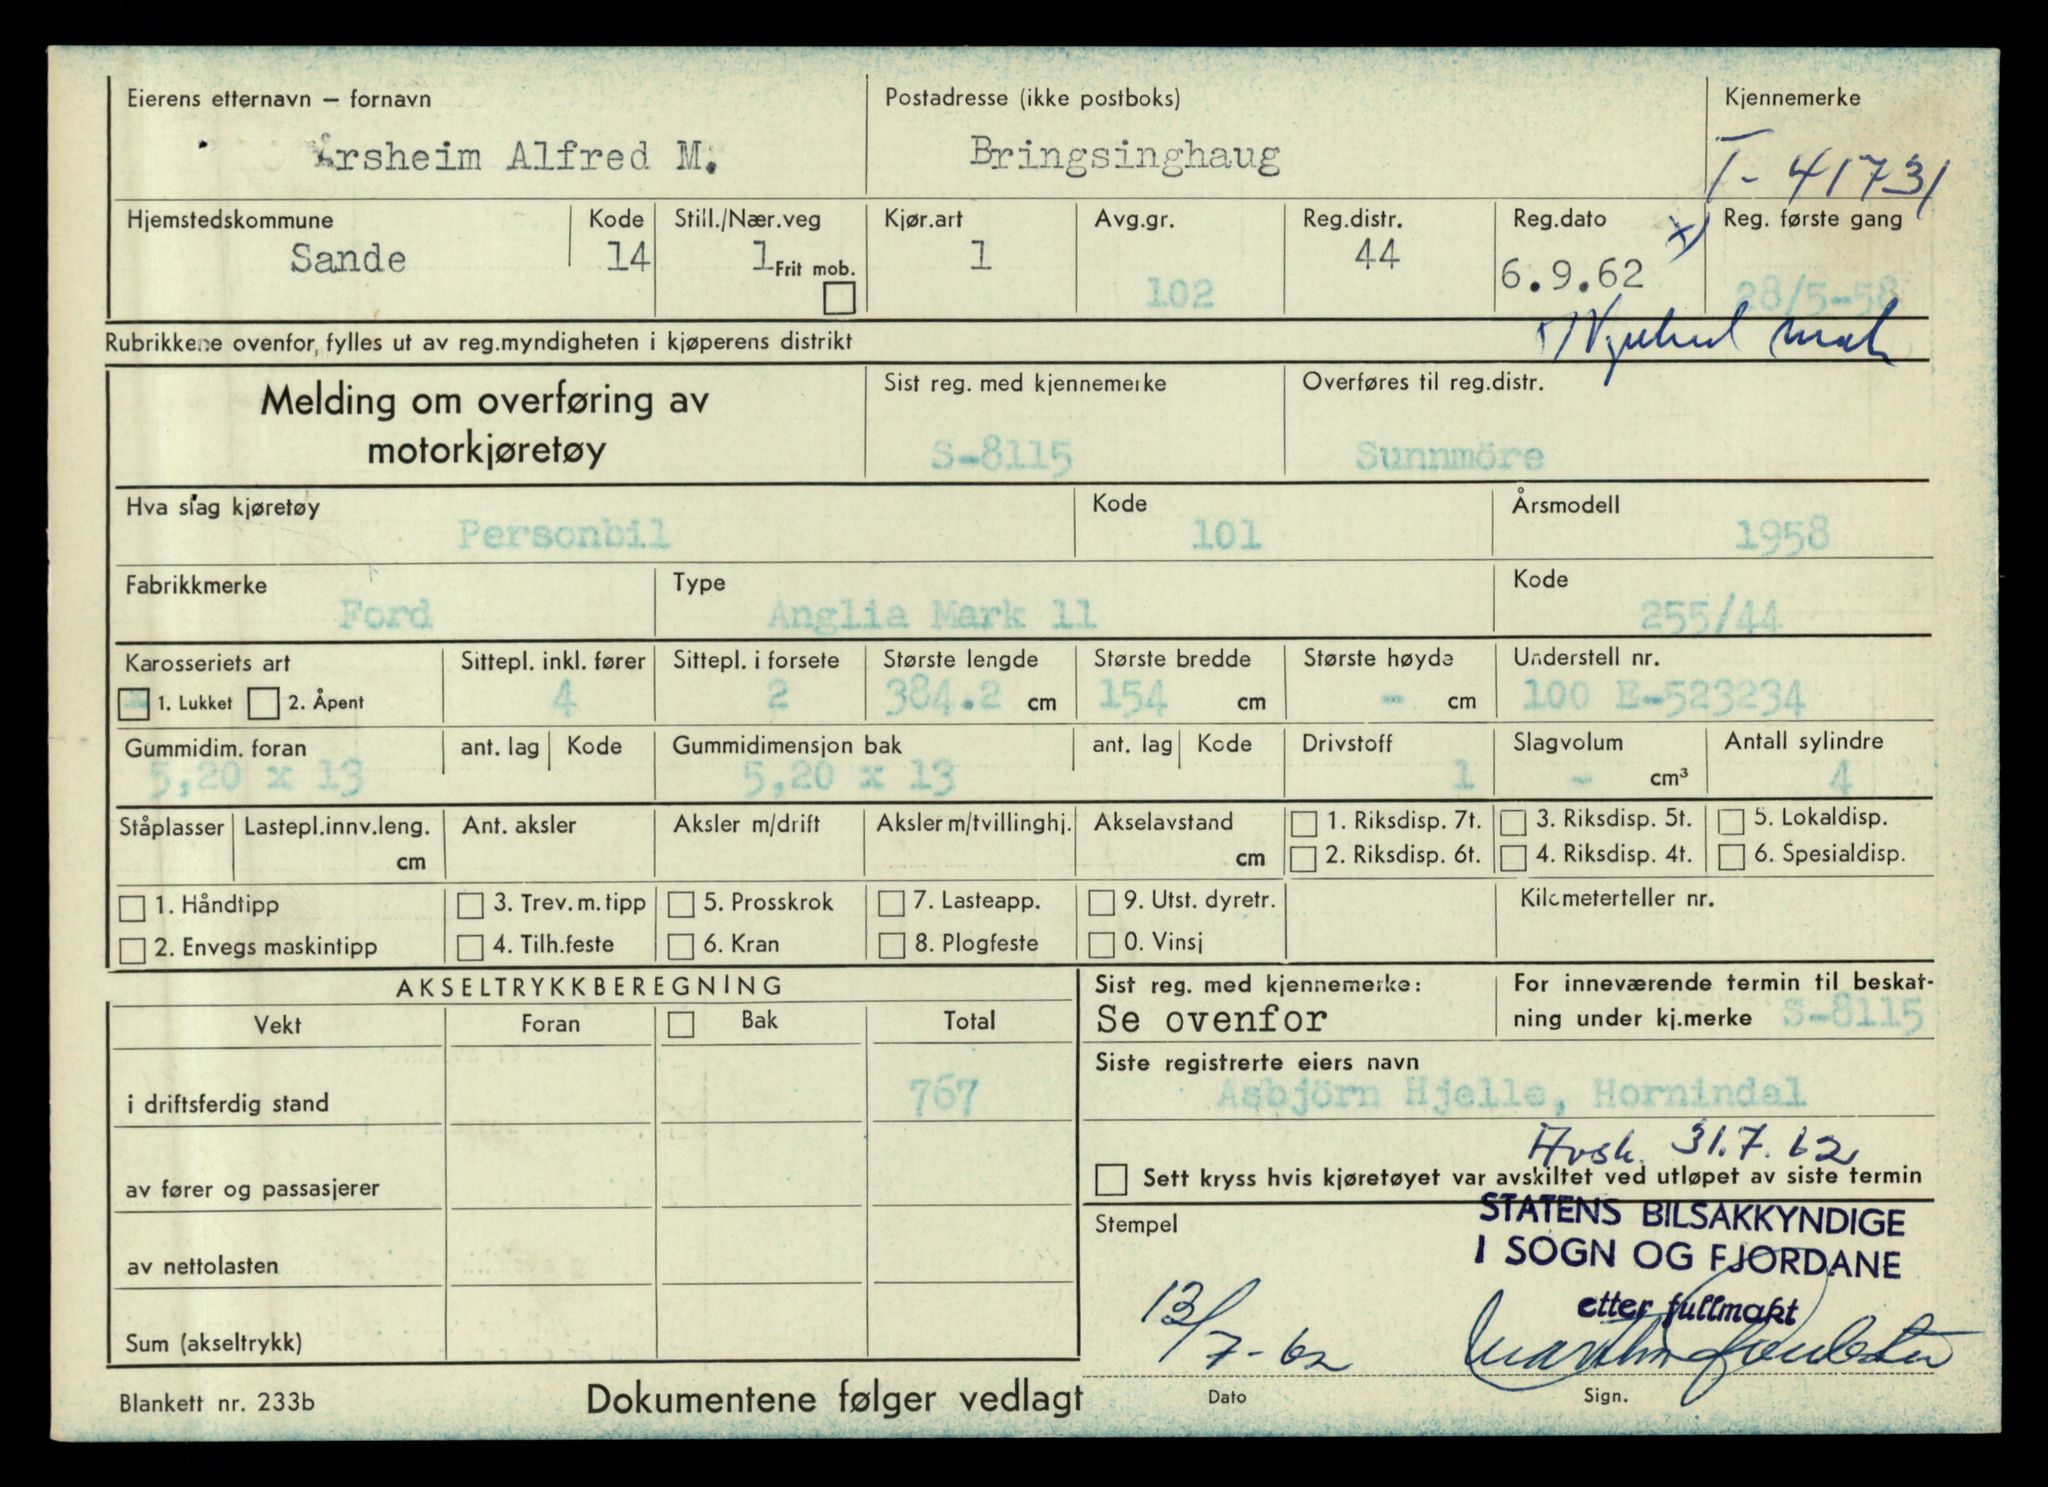 Eierens etternavn – fornavn Postadresse (ikke postboks) Kjennemerke
Årsheim Alfred M. Bringsinghaug T-41731
Hjemstedskommune Kode Still./Nær.veg Kjør.art Avg.gr. Reg.distr. Reg.dato x) Reg. første gang
Sande 14 1 Frit mob. 1 102 44 6.9.62 28/5-58
Rubrikkene ovenfor fylles ut av reg.myndigheten i kjøperens distrikt
Melding om overføring av motorkjøretøy
Sist reg. med kjennemerke Overføres til reg.distr.
S-8115 Sunnmöre
Hva slag kjøretøy Kode Årsmodell
Personbil 101 1958
Fabrikkmerke Type Kode
Ford Anglia Mark 11 255/44
Karosseriets art Sittepl. inkl. fører Sittepl. i forsete Største lengde Største bredde Største høyde Understell nr.
1. Lukket 2. Åpent 4 2 384.2 cm 154 cm - cm 100 E-523234
Gummidim. foran ant. lag Kode Gummidimensjon bak ant. lag Kode Drivstoff Slagvolum Antall sylindre
5,20 x 13 5,20 x 13 1 - cm³ 4
Ståplasser Lastepl.innv.leng. Ant. aksler Aksler m/drift Aksler m/tvillinghj. Akselavstand 1. Riksdisp. 7t. 3. Riksdisp. 5t. 5. Lokaldisp.
cm cm 2. Riksdisp. 6t. 4. Riksdisp. 4t. 6. Spesialdisp.
1. Håndtipp 3. Trev. m. tipp 5. Prosskrok 7. Lasteapp. 9. Utst. dyretr. Kilometerteller nr.
2. Envegs maskintipp 4. Tilh.feste 6. Kran 8. Plogfeste 0. Vinsj
AKSELTRYKKBEREGNING Sist reg. med kjennemerke: For inneværende termin til beskat-
Vekt Foran Bak Total Se ovenfor ning under kj.merke S-8115
Siste registrerte eiers navn
i driftsferdig stand 767 Asbjörn Hjelle, Hornindal
Avsk. 31.7.62
av fører og passasjerer Sett kryss hvis kjøretøyet var avskiltet ved utløpet av siste termin
Stempel STATENS BILSAKKYNDIGE
av nettolasten I SOGN OG FJORDANE
etter fullmakt
Sum (akseltrykk) 13/7-62
Blankett nr. 233b Dokumentene følger vedlagt Dato Sign.